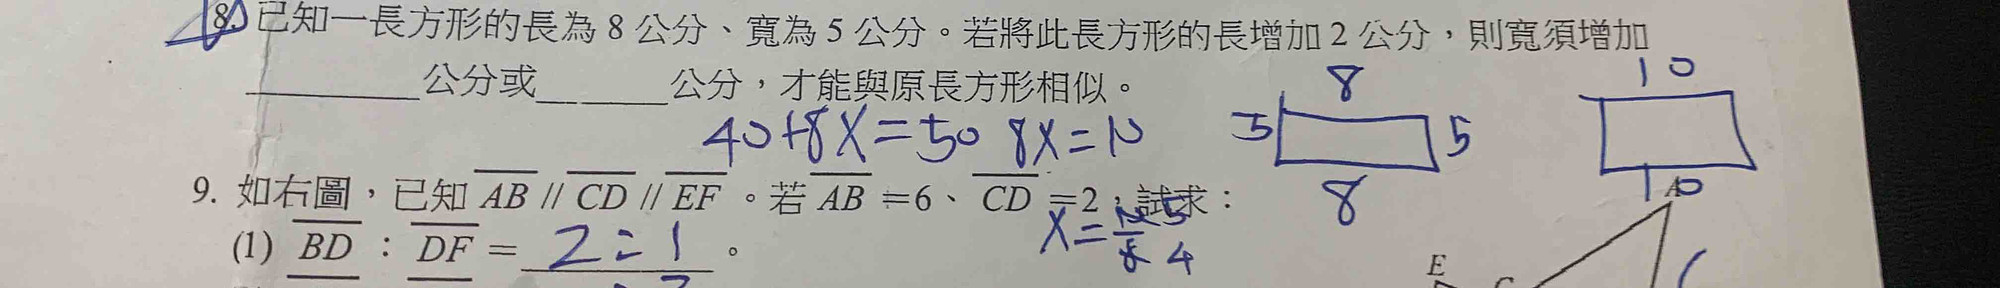 8. 已知一長方形的長為 8 公分、寬為 5 公分。若將此長方形的長增加 2 公分，則寬須增加
________公分或________公分，才能與原長方形相似。
8 10
5 5
40+8X=50 8X=10
8 10
9. 如右圖，已知 AB // CD // EF 。若 AB =6、 CD =2，試求：
X= 5
8 4
(1) BD ： DF = 2:1 。
A
E
C